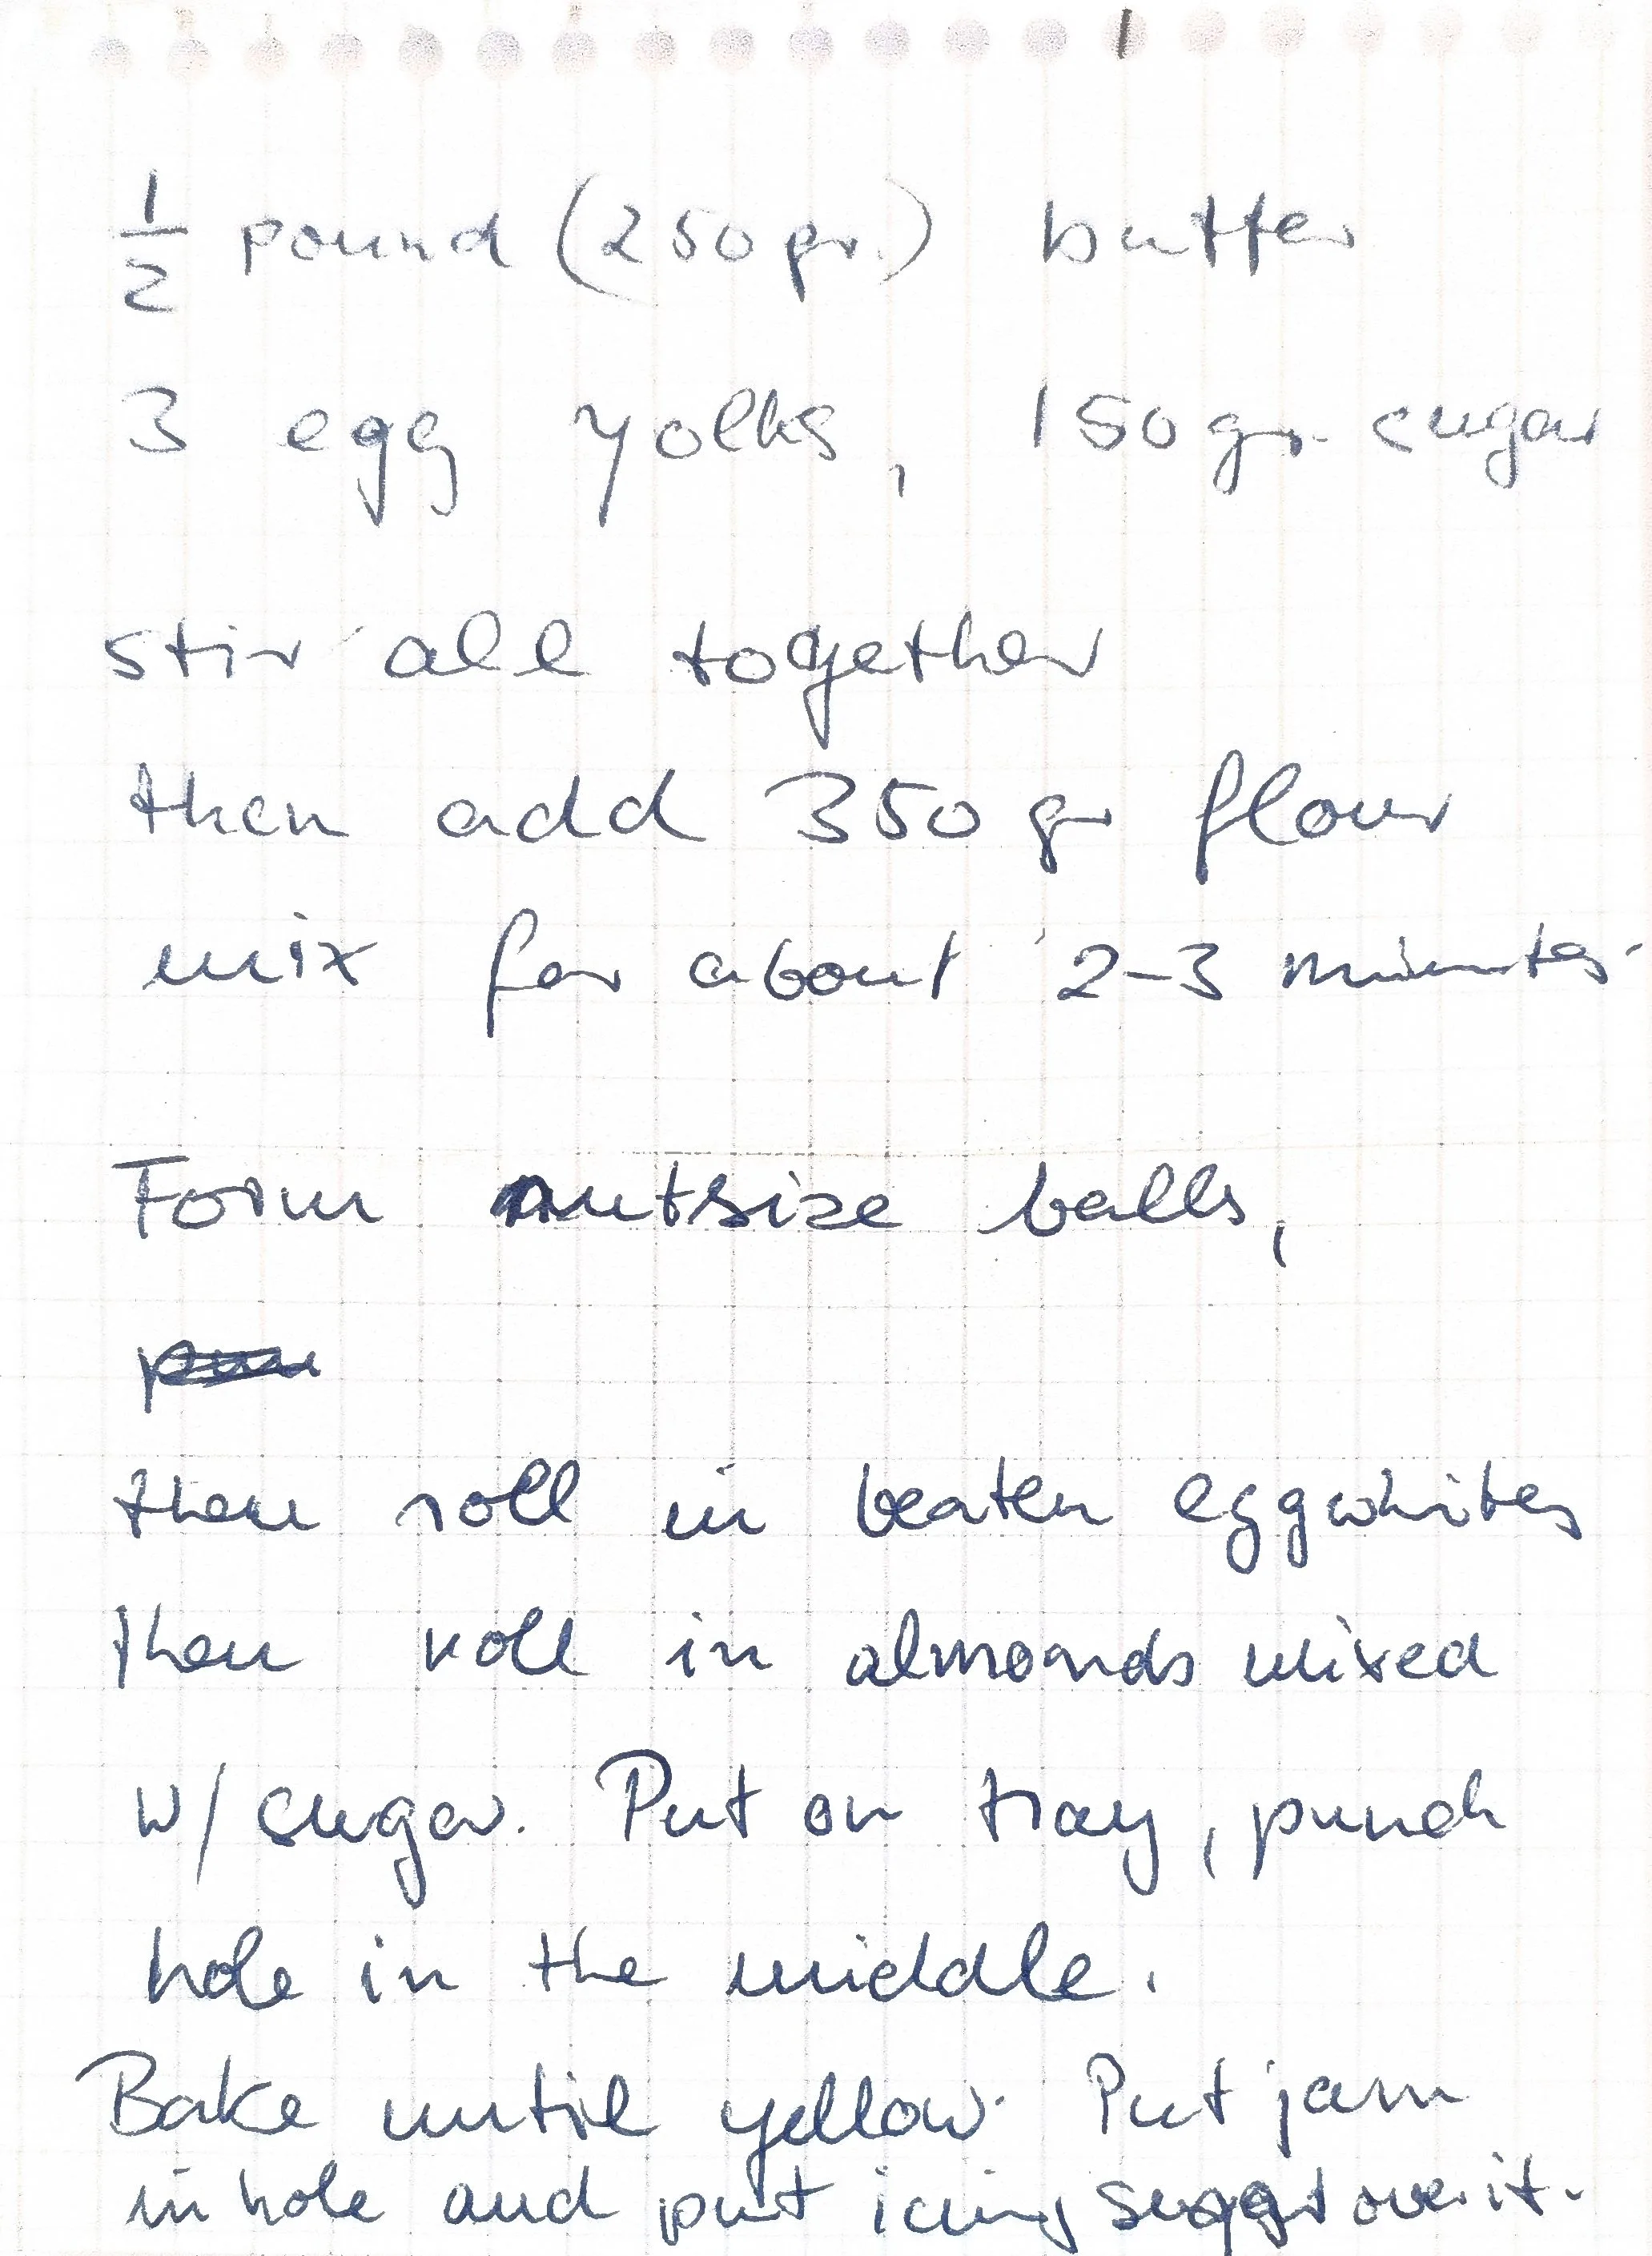 ½ pound (250 gr.) butter
3 egg yolks, 150 gr. sugar
stir all together
then add 350 gr flour
mix for about 2-3 minutes.
Form nutsize balls,
then roll in beaten eggwhites
then roll in almonds mixed
w/ sugar. Put on tray, punch
hole in the middle.
Bake until yellow. Put jam
in hole and put icing sugar over it.